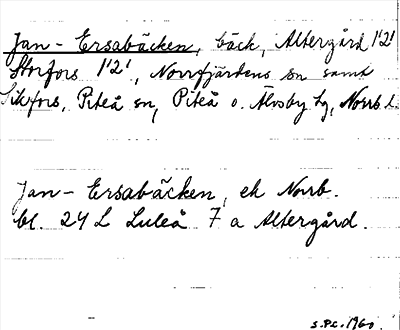 Jan-Ersabäcken, bäck, Altergård 1'2'
Storfors 1'2', Norrfjärdens sn samt
Sikfors, Piteå sn, Piteå o. Älvsby tg, Norrb. l.
Jan-Ersabäcken, ek Norrb.
bl. 24 L Luleå 7 a Altergård.
S.P.C. 1960.